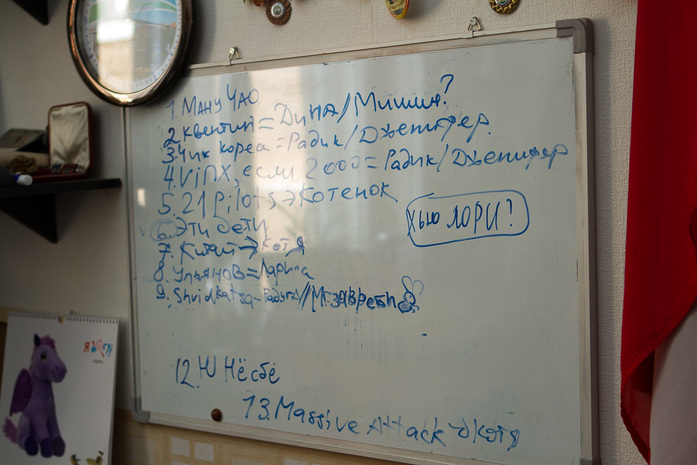 1. Ману Чао
2. Квентин = Дина/Мишин?
3. Чик Кореа = Радик/Дженифер.
4. ViПХ, если 2000 = Радик/Дженифер
5. 21 Pilots → Котенок
Хью ЛОРИ?
6. Эти дети
7. → Котя
8. Ульянов = Ларина
9.
12. Ю Несбё
13. Massive Attack → Котя